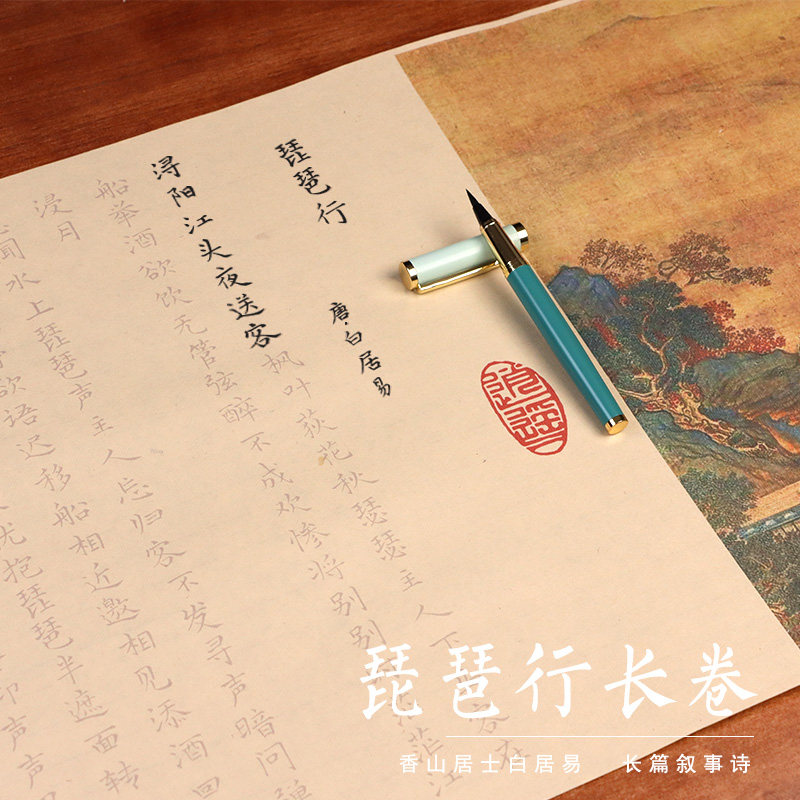 琵琶行
唐·白居易
浔阳江头夜送客枫叶荻花秋瑟瑟主人下客在
船举酒欲饮无管弦醉不成欢惨将别别茫江
浸月
闻水上琵琶声主人忘归客不发寻声暗问
欲语迟移船相近邀相见添酒回
犹抱琵琶半遮面转
声声
逍遥
琵琶行长卷
香山居士白居易 长篇叙事诗